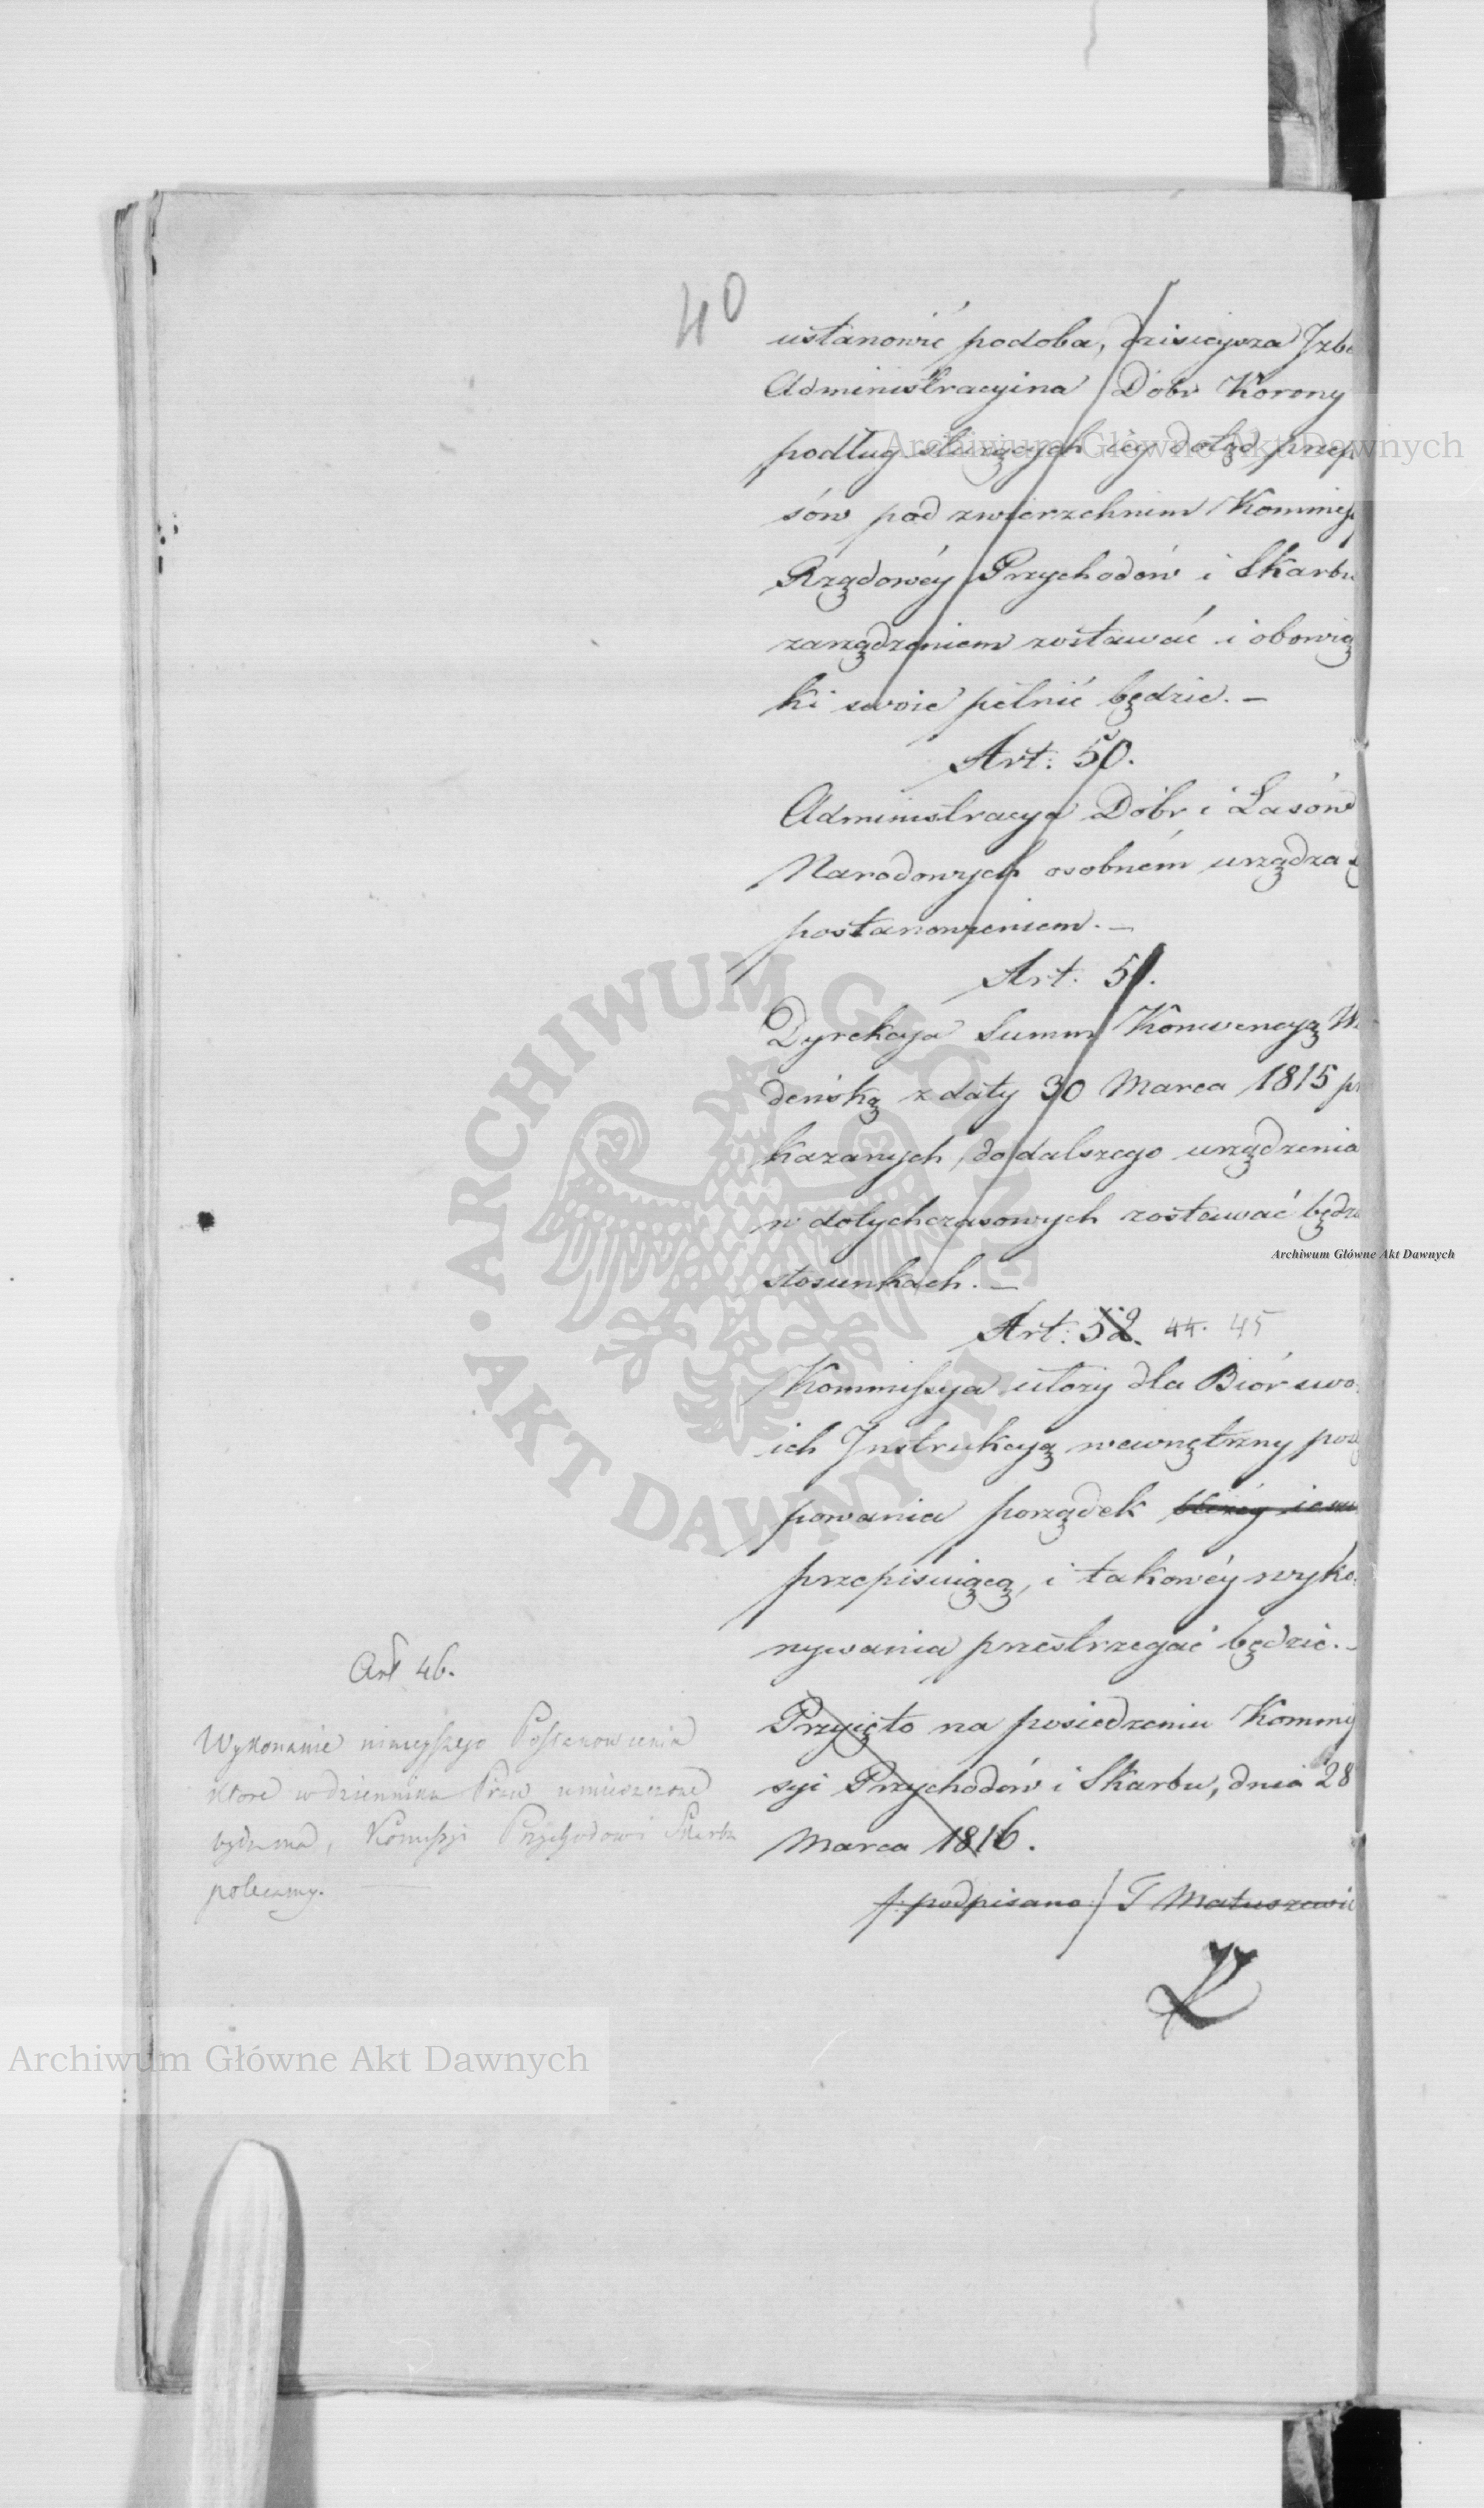 40
ustanowić podoba, dzisieysza Izb
Administracyina Dóbr Korony
podług służących iéy dotąd przep
sów pod zwierzchnim Kommis
Rządowéy Przychodów i Skarbu
zarządzeniem zostawać i obowią
ki swoie pełnić będzie. –
Art. 50.
Administracya Dóbr i Lasów
Narodowych osobném urządza s
postanowieniem. –
Art. 51.
Dyrekcya Summ Konwencyą W
deńską z daty 30 Marca 1815 p
kazanych, do dalszego urządzenia
w dotychczasowych zostawać będz
stosunkach. –
Art: 52. 44. 45
Kommissya ułoży dla Biór swo
ich Instrukcyą wewnętrzny pos
powania porządek
przepisuiącą, i takowéy wyko
nywania przestrzegać będzie. –
Przyięto na posiedzeniu Kommis
syi Przychodów i Skarbu, dnia 28
Marca 1816.
/: podpisano :/ T Matuszewic
Art 46.
Wykonanie ninieyszego Postanowienia
które w dzienniku Praw umieszczone
bydź ma, Komissyi Przychodow i Skarbu
polecamy. —
Archiwum Główne Akt Dawnych
Archiwum Główne Akt Dawnych
Archiwum Główne Akt Dawnych
ARCHIWUM GŁÓWNE AKT DAWNYCH